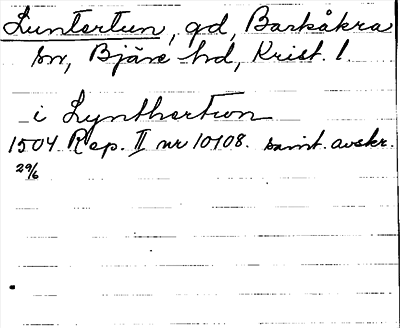 Luntertun, gd, Barkåkra
sn, Bjäre hd, Krist. l.
i Lynthertwn
1504 Rep. II nr 10108. samt. avskr.
29/6